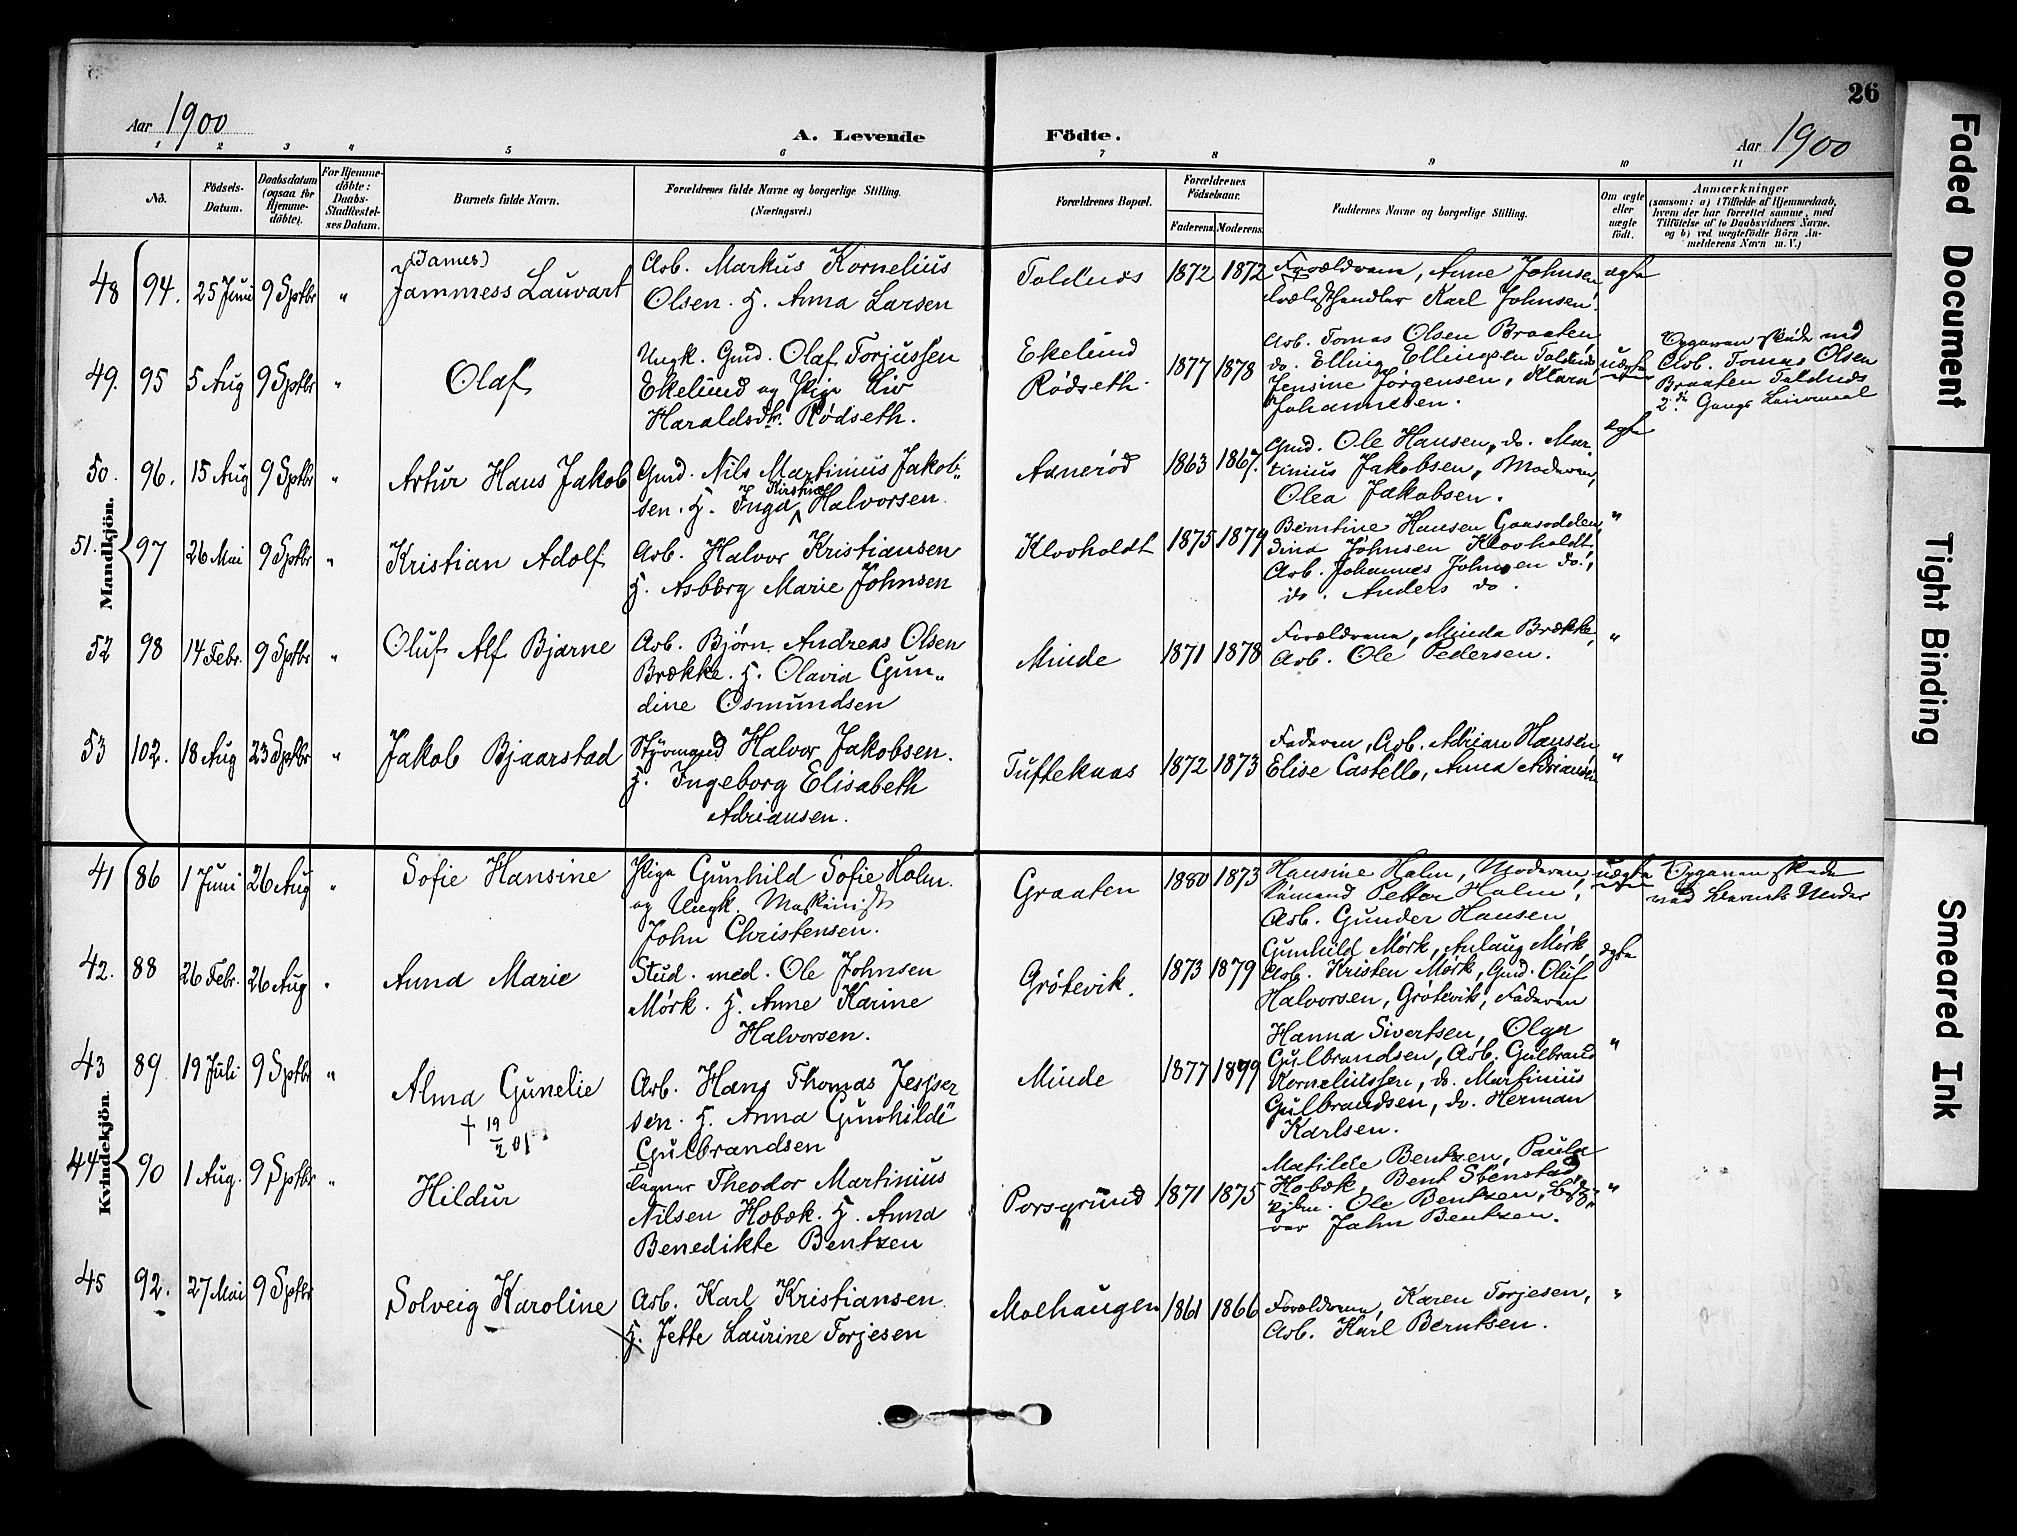 26
Aar 1900
A. Levende Födte.
Aar 1900
1 2 3 4 5 6 7 8 9 10 11
No.
Födsels-
Datum.
Daabsdatum
(ogsaa for
Hjemme-
döbte).
For Hjemme-
döbte:
Daabs-
Stadfæstel-
ses Datum.
Barnets fulde Navn.
Forældrenes fulde Navne og borgerlige Stilling.
(Næringsvei.)
Forældrenes Bopæl.
Forældrenes
Födselsaar.
Faderens. Moderens.
Faddernes Navne og borgerlige Stilling.
Om ægte
eller
uægte
födt.
Anmærkninger
(saasom: a) i Tilfælde af Hjemmedaab,
hvem der har forrettet samme, med
Tilföielse af to Daabsvidners Navne,
og b) ved uægtefödte Börn An-
melderens Navn m. V.)
Mandkjön.
48 94. 25 Juni 9 Sptbr "
(James)
Jammess Lauvart
Arb. Markus Kornelius
Olsen. H. Anna Larsen
Toldnes 1872 1872
Forældrene, Anne Johnsen
Trælasthandler Karl Johnsen.
ægte
49. 95 5 Aug 9 Sptbr "
Olaf
Ungk. Gmd. Olaf Torjussen
Ekelund og Pige Liv
Haraldsdtr. Rödseth.
Ekelund
Rødseth. 1877 1878
Arb. Tomas Olsen Braaten
do. Elling Ellingsen Toldnes
Jensine Jørgensen, Klara
Johannesen.
uægte
Opgaven skede ved
Arb. Tomas Olsen
Braaten Toldnes
2den Gangs Leiermaal
50. 96. 15 Aug 9 Sptbr "
Artur Hans Jakob
Gmd. Nils Martinius Jakob-
sen. H. Inga Kirstine Halvorsen.
Aanerød 1863 1867.
Gmd. Ole Hansen, do. Mar-
tinius Jakobsen, Moderen,
Olea Jakobsen.
ægte
51. 97 26 Mai 9 Sptbr "
Kristian Adolf
Arb. Halvor Kristiansen
H. Asborg Marie Johnsen
Klovholdt 1875 1879
Berntine Hansen Gaasodden,
Dina Johnsen Klovholdt,
Arb. Johannes Johnsen do.,
do. Anders do.
"
52 98 14 Febr. 9 Sptbr "
Oluf Alf Bjarne
Arb. Bjørn Andreas Olsen
Brække. H. Olavia Gun-
dine Osmundsen
Minde 1871 1878
Forældrene, Minda Brække,
Arb. Ole Pedersen.
"
53 102. 18 Aug 23 Sptbr "
Jakob Bjaarstad
Styrmand Halvor Jakobsen.
H. Ingeborg Elisabeth
Adriansen.
Tuftekaas 1872 1873
Faderen, Arb. Adrian Hansen,
Elise Castello, Anna Adriansen
"
Kvindekjön.
41 86 1 Juni 26 Aug "
Sofie Hansine
Pige Gunhild Sofie Holm.
og Ungk. Maskinist
John Christensen.
Graaten 1880 1873
Hansine Holm, Moderen,
Sømand Petter Holm,
Arb. Gunder Hansen
uægte
Opgaven skede
ved Barnets Moder
42. 88 26 Febr. 26 Aug "
Anna Marie
Stud. med. Ole Johnsen
Mørk. H. Anne Karine
Halvorsen.
Grötevik. 1873 1879
Gunhild Mørk, Anlaug Mørk,
Arb. Kristen Mørk, Gmd. Oluf
Halvorsen, Grötevik, Faderen
ægte
43 89 19 Juli 9 Sptbr "
Alma Gunelie
† 19/2 01
Arb. Hans Thomas Jesper
sen. H. Anna Gunhilde
Gulbrandsen
Minde 1877 1899
Hanna Sivertsen, Olga
Gulbrandsen, Arb. Gulbrand
Korneliussen, do. Martinius
Gulbrandsen, do. Herman
Karlsen.
"
44 90 1 Aug. 9 Sptbr "
Hildur
Theodor Martinius
Nilsen Hobæk. H. Anna
Benedikte Bentzen
Porsgrund 1871 1875
Matilde Bentzen, Paula
Hobæk, Bent Stenstad,
Kjbm. Ole Bentzen,
John Bentzen.
"
45 92. 27 Mai 9 Sptbr
Solveig Karoline
Arb. Karl Kristiansen.
H. Jette Laurine Torjesen
Molhaugen 1861 1866
Forældrene, Karen Torjesen,
Arb. Karl Berntsen.
"
Faded Document
Tight Binding
Smeared Ink